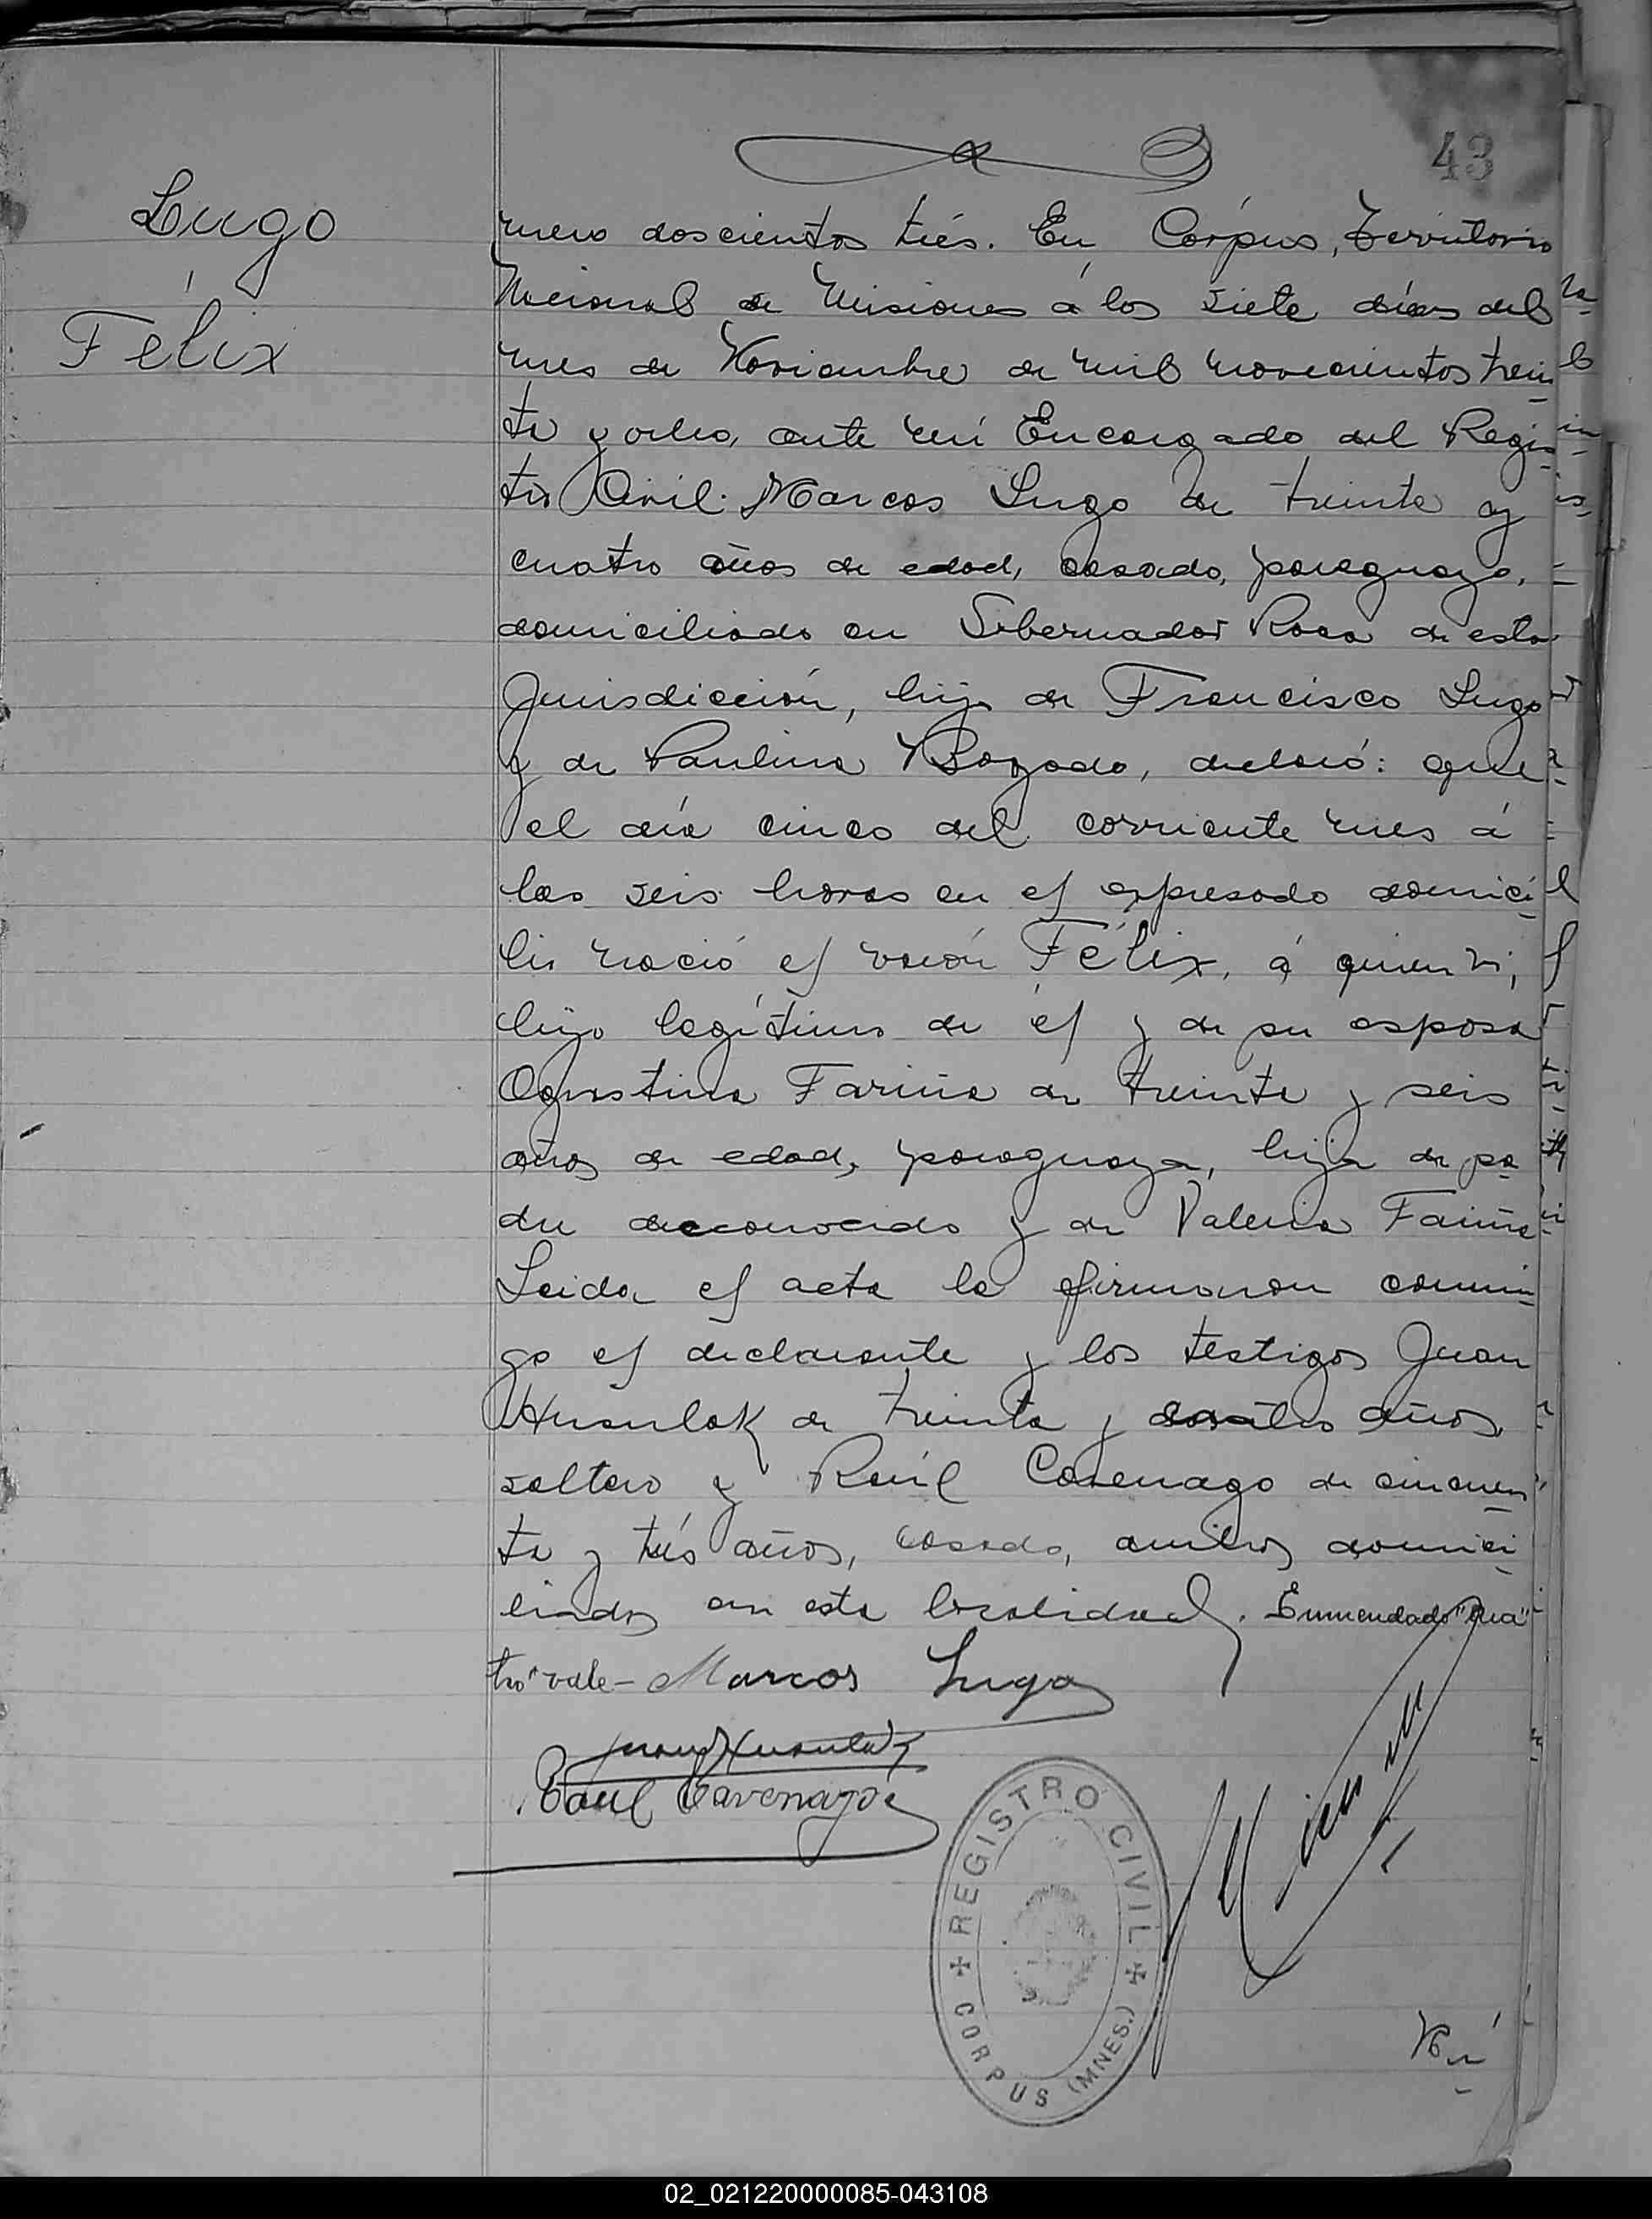 43
Lugo
Félix
mero doscientos trés. En Córpus, Territorio
Nacional de Misiones á los siete días del
mes de Noviembre de mil novecientos trein
ta y ocho, ante mí Encargado del Regis
tro Civil: Marcos Lugo de treinta y
cuatro años de edad, casado, paraguayo,
domiciliado en Gobernador Roca de esta
Jurisdicción, hijo de Francisco Lugo
y de Paulina Bogado, declaró: que
el día cinco del corriente mes á
las seis horas en el expresado domici
lio nació el varón Félix, á quien vi,
hijo legítimo de él y de su esposa
Agustina Fariña de treinta y seis
años de edad, paraguaya, hija de pa
dre desconocido y de Valeria Fariña
Leida el acta la firmaron conmi
go el declarante y los testigos Juan
Husulak de treinta y cuatro años,
soltero y Raúl Cavenago de cincuen
ta y trés años, casado, ambos domici
liados en esta localidad. Enmendado "cua
tro" vale- Marcos Lugo
Juan Husulak
Raul Cavenago
REGISTRO CIVIL
CORPUS (MNES.)
Nú
02_021220000085-043108